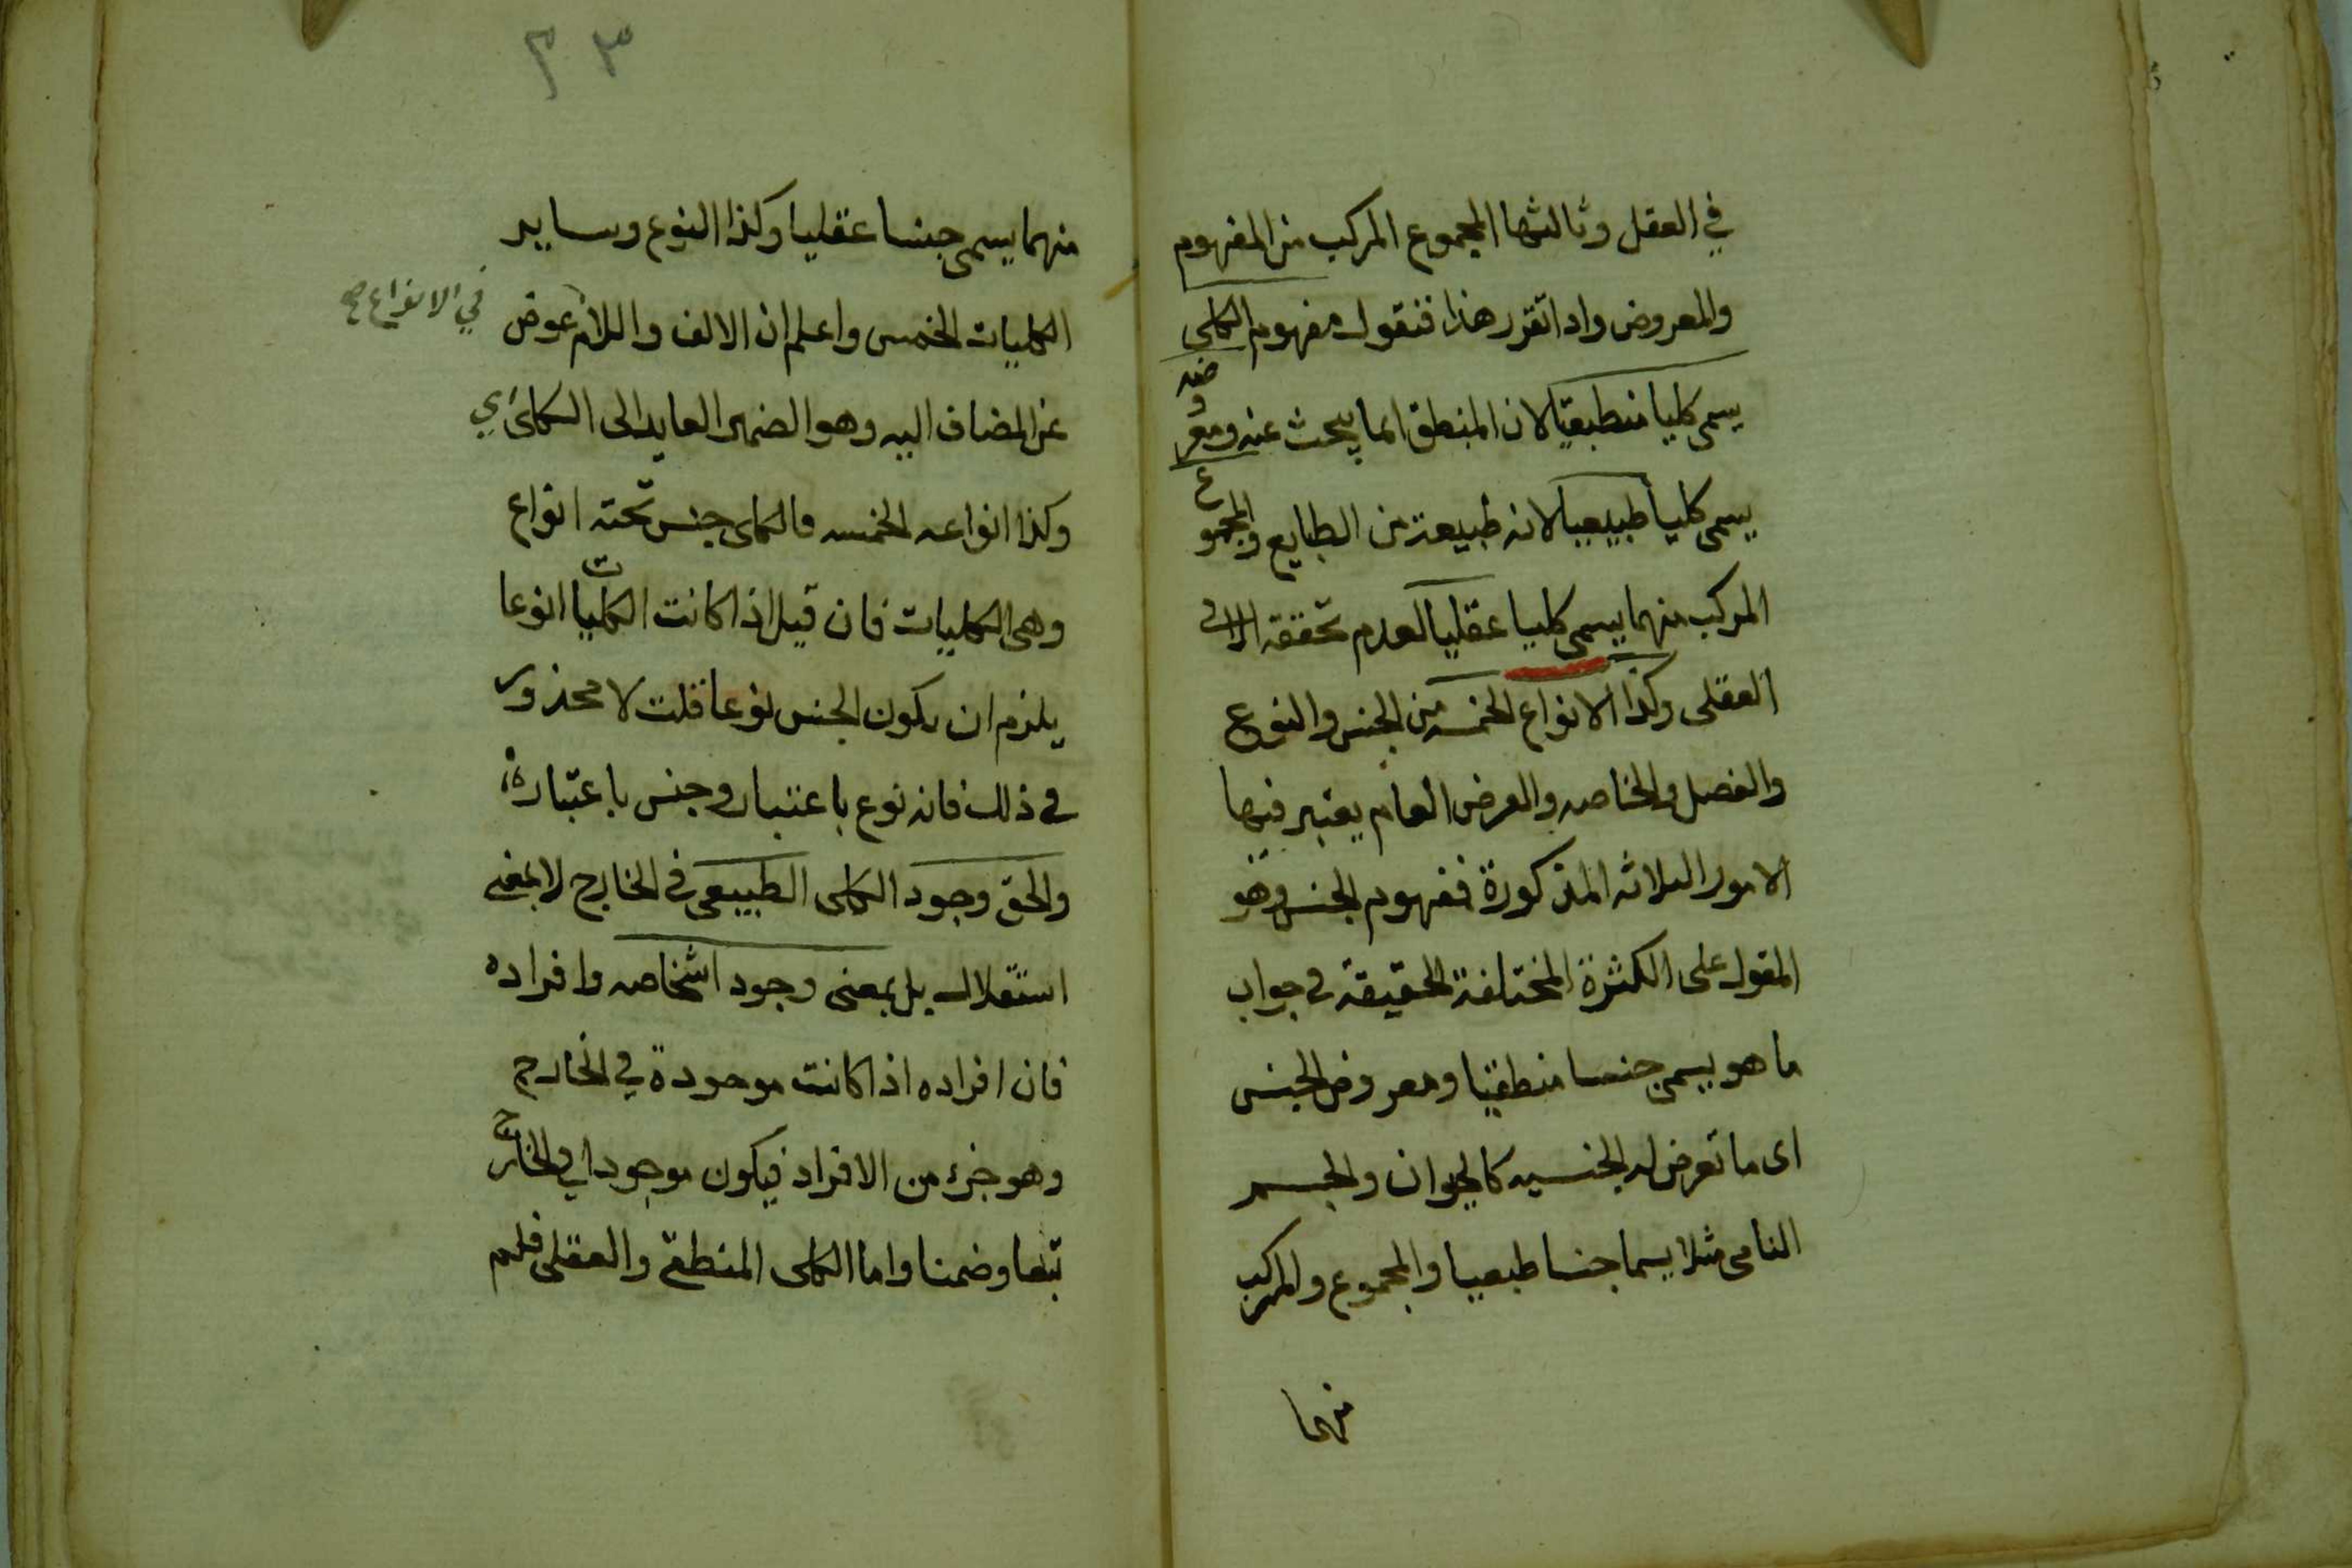 في العقل وثالثها المجموع المركب من المفهوم
والمعروض واذا تقرر هذا فنقول مفهوم الكلي
يسمى كليا منطقيا لان المنطقي انما يبحث عنه ومعروضه
يسمى كليا طبيعيا لانه طبيعة من الطبايع والمجموع
المركب منهما يسمى كليا عقليا لعدم تحققه الا في
العقلى وكذا الانواع الخمسه من الجنس والنوع
والفصل والخاصه والعرض العام يعتبر فيها
الامور الثلاثه المذكورة فمفهوم الجنس وهو
المقول على الكثرة المختلفة الحقيقة في جواب
ما هو يسمى جنسا منطقيا ومعروض الجنس
اى ما تعرض له الجنسيه كالحيوان والجسم
النامى مثلا يسما جنسا طبعيا والمجموع والمركب
منهما
٢٣
منهما يسمى جنسا عقليا وكذا النوع وساير
الكليات الخمس واعلم ان الالف واللام عوض
في الانواع صح
عن المضاف اليه وهو الضمير العايد الى الكلى اي
وكذا انواعه الخمسه فالكلى جنس تحته انواع
وهى الكليات فان قيل اذا كانت الكليات انوعا
يلزم ان يكون الجنس نوعا قلت لا محذور
في ذلك فانه نوع باعتبار وجنس باعتبار
والحق وجود الكلى الطبيعى في الخارج لا بمعنى
استقلال بل بمعنى وجود اشخاصه وافراده
فان افراده اذا كانت موجودة في الخارج
وهو جزء من الافراد فيكون موجودا في الخارج
تبعا وضمنا واما الكلى المنطقي والعقلى فلم